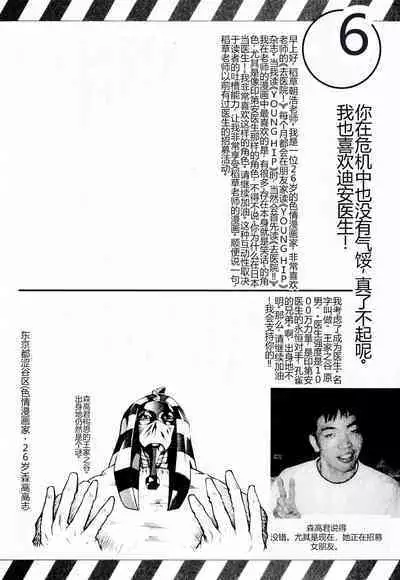 6
你在危机中也没有气馁，真了不起呢。
我也喜欢迪安医生！
早上好，稻草朝浩老师。我是一位26岁的色情漫画家，非常喜欢
老师的《去医院！》。每个月都会在朋友家读《YOUNG HIP》
杂志。当我读《YOUNG HIP》时，当然会首先读《去医院！》。
我在老师的漫画中最喜欢的是，有很多“存在本身就是笑话”的角
色。尤其是像印第安医生那样的角色。不得不说，你为什么在日本
当医生！我非常喜欢这样的角色，请继续加油。这种互动性取决
于读者的吐槽能力，让我非常享受稻草老师的漫画。顺便说一句，
稻草老师以前有过医生的招募活动，
我考虑了成为医生。名
字叫做“王家之谷 原
男”。医生强度是10
00万力量。是印第安
医生的永恒对手，孔雀
的兄弟。啊，出身地不
明。那么，请继续加油
！我会支持你的！！
森高君构思的王家之谷。
出身地仍然是个谜。
东京都涩谷区（色情漫画家・26岁）森高高志
森高君说得
没错。尤其是现在，她正在招募
女朋友。